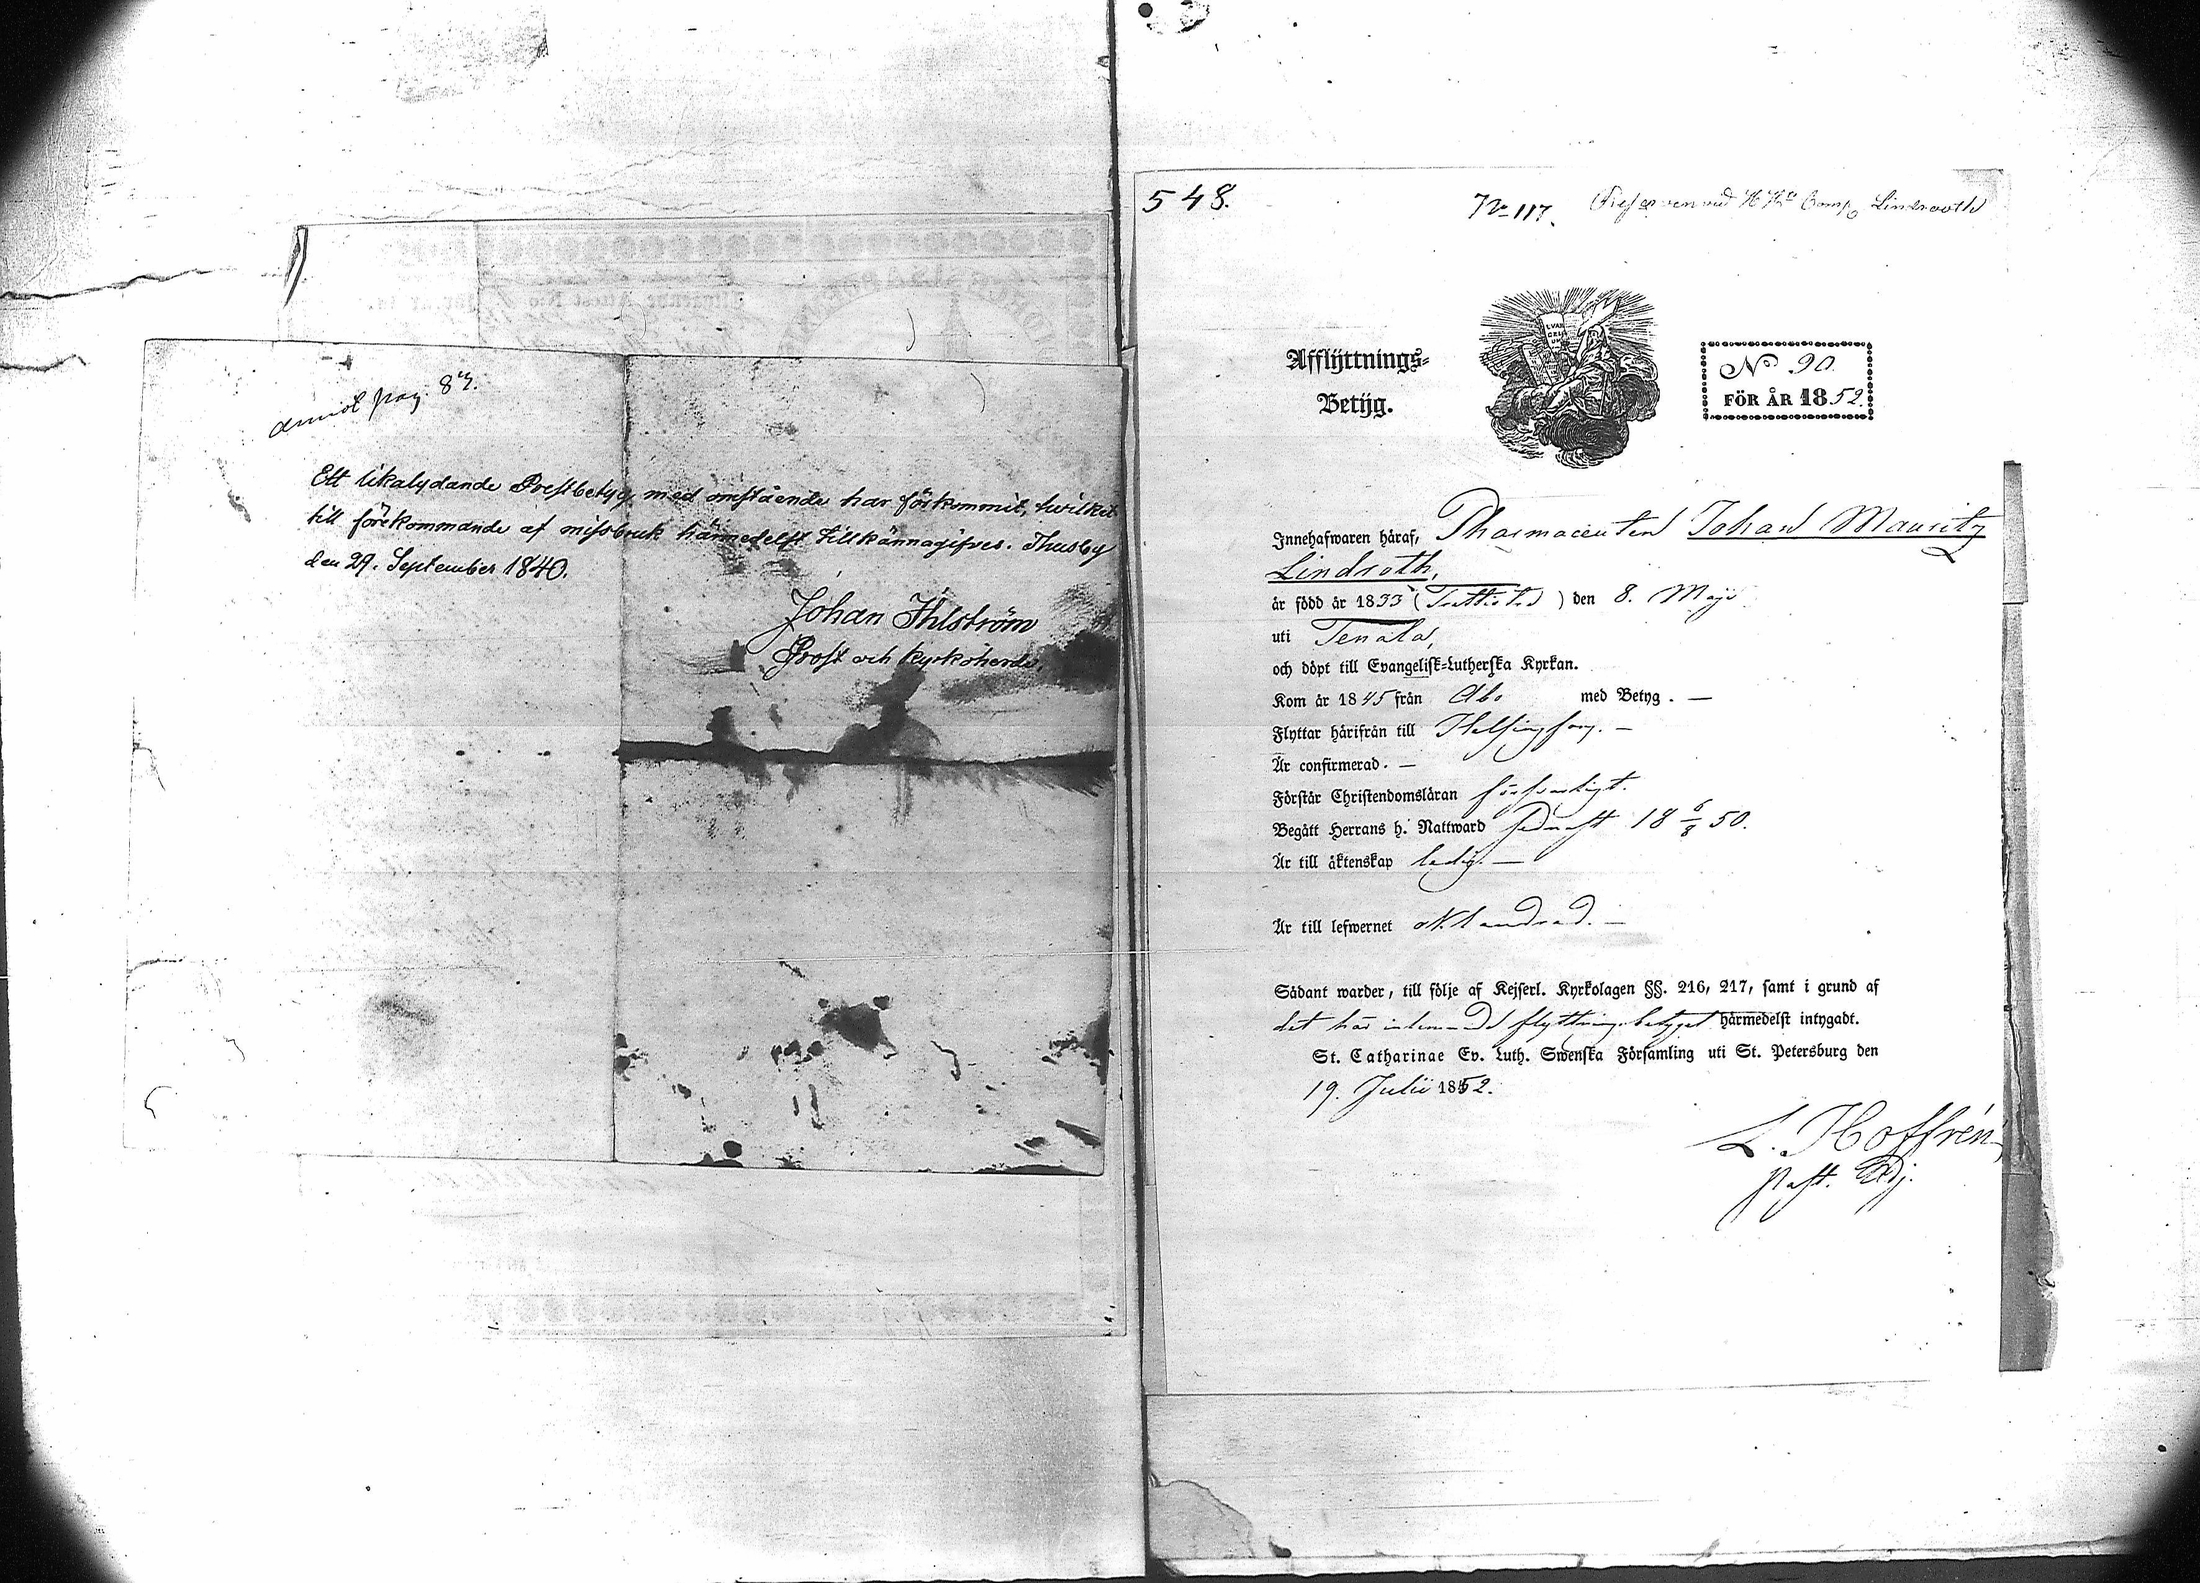 pag. 83.
Ett likalydande Prestbetyg med omstående har förkommit, hvilket
till förekommande af missbruk härmedelst tillkännagifves. Thusby
den 29. September 1840.
Johan Ihlström
Prost och Kyrkoherde.
548.
No 117. Lindrooth
Afflyttnings-
Betyg.
EVAN
GELI
UM
No 90.
FÖR ÅR 1852.
Innehafwaren häraf, Pharmaceuten Johan Mauritz
Lindroth,
är född år 1833 (Trettiotre) den 8. Maji
uti Tenala,
och döpt till Evangelisk-Lutherska Kyrkan.
Kom år 1845 från Åbo med Betyg. —
Flyttar härifrån till Helsingfors. —
Är confirmerad. —
Förstår Christendomsläran försvarligt.
Begått Herrans h. Nattward sednast 18 6/8 50.
Är till äktenskap ledig. —
Är till lefwernet oklandrad. —
Sådant warder, till följe af Kejserl. Kyrkolagen §§. 216, 217, samt i grund af
det här inlemnade flyttningsbetyget härmedelst intygadt.
St. Catharinae Ev. Luth. Swenska Församling uti St. Petersburg den
19. Julii 1852.
L. Hoffrén
Past. Adj.